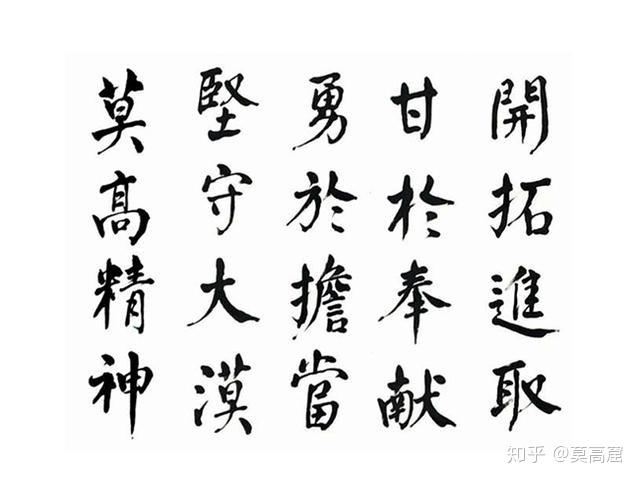 莫高精神
堅守大漠
勇於擔當
甘於奉献
開拓進取
知乎 @莫高窟